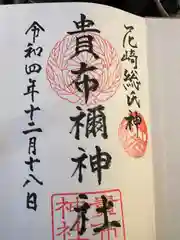 尼崎総氏神
貴布禰神社
令和四年十二月十八日